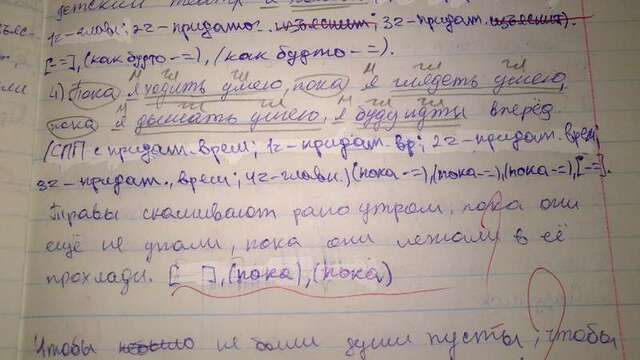 детский театр
1г-главн; 2г-придат. изъяснит; 3г-придат. изъяснит).
[-=],(как будто -=), (как будто -=).
4) Пока я ходить умею, пока я глядеть умею,
пока я дышать умею, я буду идти вперёд
(СПП с придат. врем; 1г-придат. вр; 2г-придат. врем;
3г-придат., врем; 4г-главн.) (пока -=),(пока -=),(пока -=),[-=].
Травы скашивают рано утром, пока они
ещё не упали, пока они лежали в её
прохлади. [ ],(пока),(пока)
Чтобы не были души пусты, чтобы